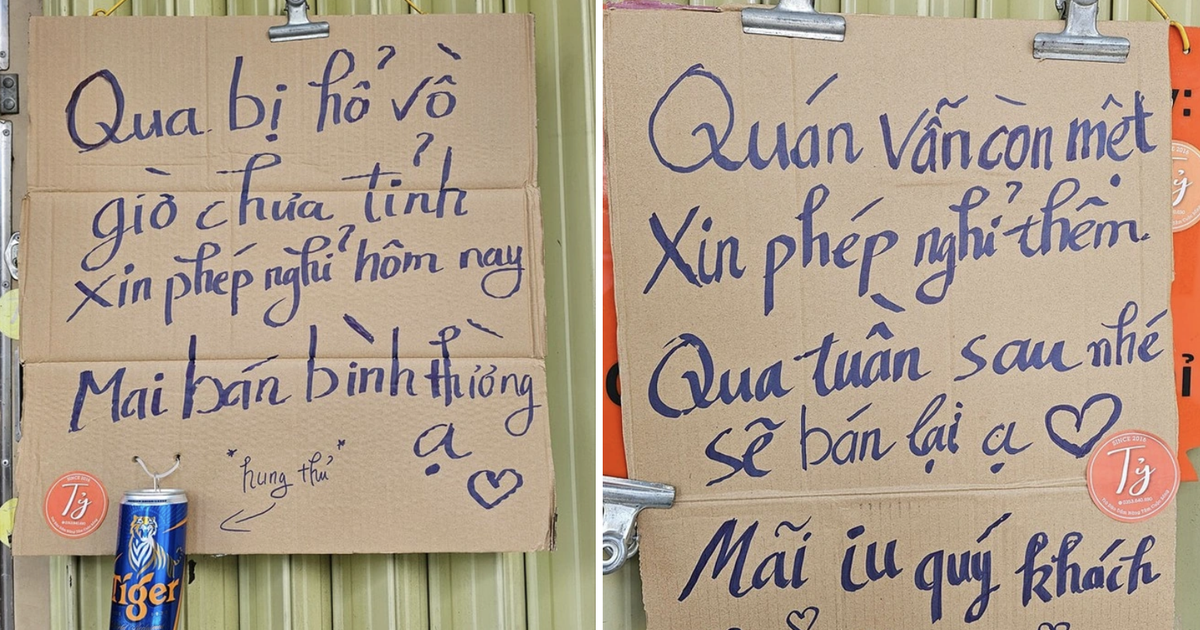 Qua bị hổ vồ
giờ chưa tỉnh
xin phép nghỉ hôm nay
Mai bán bình thường
ạ
"hung thủ"
Tỷ
Tiger
Quán vẫn còn mệt
Xin phép nghỉ thêm.
Qua tuần sau nhé
sẽ bán lại ạ
SINCE 2016
Tỷ
Mãi iu quý khách